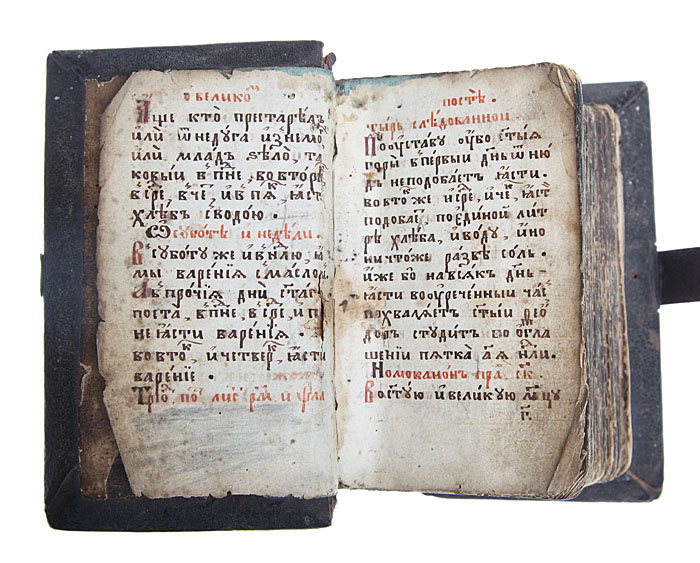 О велико
Аще кто престарѣлъ
или ѿ недуга изнемо
или младъ ѕѣло, та
ковый в пне, во вторн
в сре, в че, и в пѧ, ꙗст
хлѣбъ с водою.
Ѡ субботѣ и недели.
В субботу же и в нлю,
мы варенїя с масло
А в прочїѧ дни стаг
поста, в пне, в сре, и п
не ꙗсти варенїѧ.
во вто, и четвер, ꙗсти
варенїе.
посте.
тырь слѣдованной
По уставу ѹбо стыѧ
горы в первый днь ѿню
дъ не подобаетъ ꙗсти.
во вто же и сре, и че, ꙗст
подобае по единой лит
рѣ хлѣба, и воду, и но
ничтоже развѣ соль.
иже бо на всѧк днь
ꙗсти во ѹреченный час
похвалѧет стый ѳео
доръ студитъ во огла
шенїи пѧтка, а ѧ нли.
Номоканонъ
В остую и великую